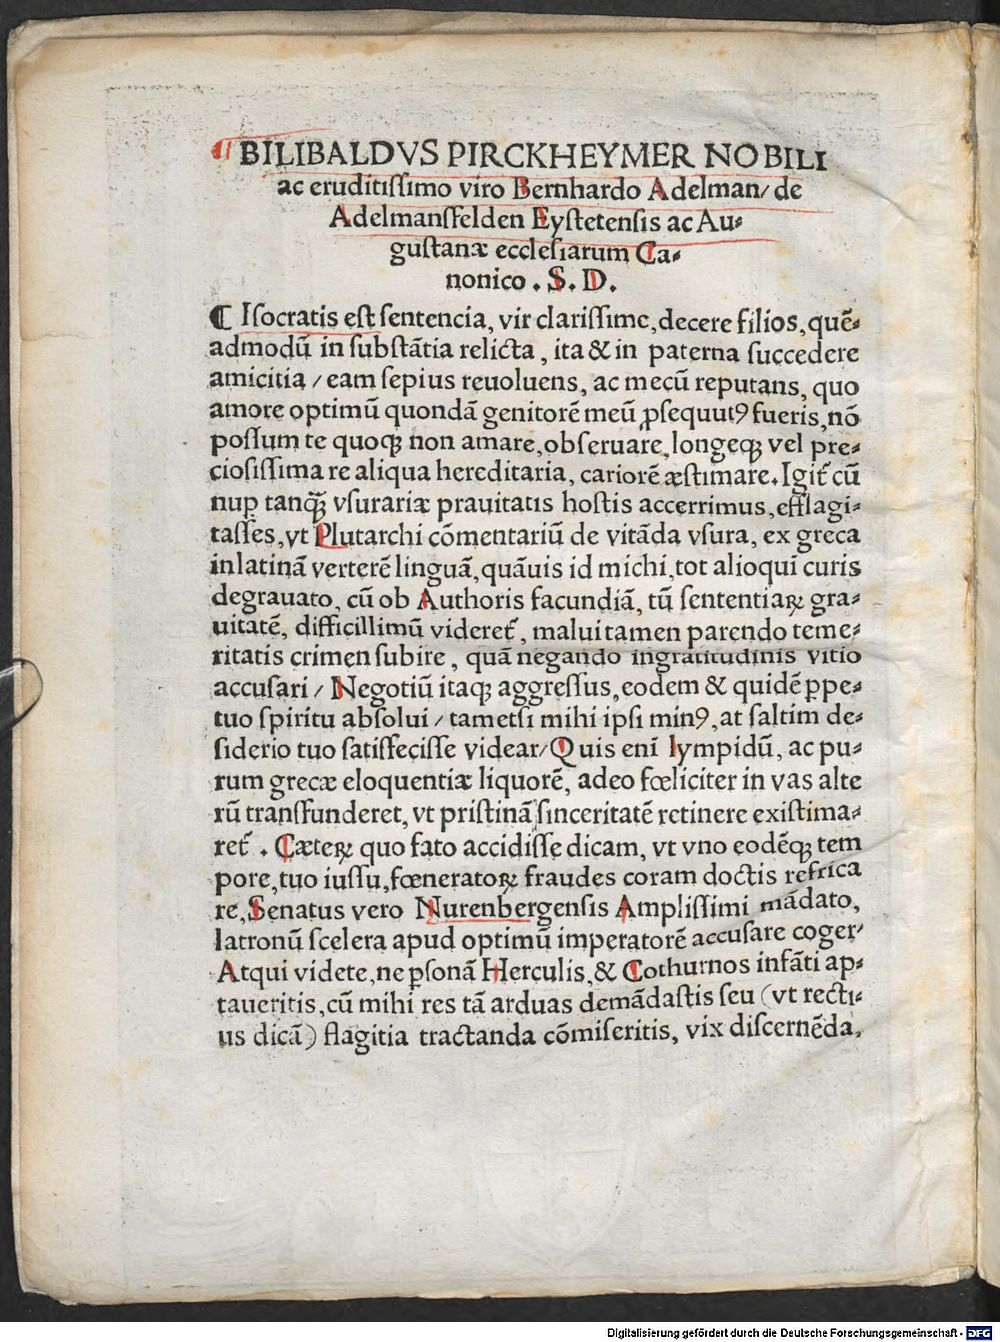 ¶ BILIBALDVS PIRCKHEYMER NOBILI
ac eruditiſſimo viro Bernhardo Adelman/ de
Adelmanſfelden Eyſtetenſis ac Au⸗
guſtanæ eccleſiarum Ca⸗
nonico . S. D.
¶ Iſocratis eſt ſentencia, vir clariſſime, decere filios, quē⸗
admodū in ſubſtātia relicta, ita & in paterna ſuccedere
amicitia / eam ſepius reuoluens, ac mecū reputans, quo
amore optimū quondā genitorē meū ꝓſequutꝰ fueris, nō
poſſum te quoqꝫ non amare, obſeruare, longeqꝫ vel pre⸗
cioſiſſima re aliqua hereditaria, cariorē æſtimare. Igit̄ cū
nuꝑ tanqꝫ̄ vſurariæ prauitatis hoſtis accerrimus, efflagi⸗
taſſes, vt Plutarchi cōmentariū de vitāda vſura, ex greca
in latinā verterē linguā, quāuis id michi, tot alioqui curis
degrauato, cū ob Authoris facundiā, tū ſententiaꝝ gra⸗
uitatē, difficillimū videret̄, malui tamen parendo teme⸗
ritatis crimen ſubire, quā negando ingratitudinis vitio
accuſari / Negotiū itaqꝫ aggreſſus, eodem & quidē ꝑpe⸗
tuo ſpiritu abſolui / tametſi mihi ipſi minꝰ, at ſaltim de⸗
ſiderio tuo ſatiſfeciſſe videar/ Quis enī lympidū, ac pu⸗
rum grecæ eloquentiæ liquorē, adeo fœliciter in vas alte
rū tranſfunderet, vt priſtinā ſinceritatē retinere exiſtima⸗
ret̄ . Cæteꝝ quo fato accidiſſe dicam, vt vno eodēqꝫ tem
pore, tuo iuſſu, fœneratoꝝ fraudes coram doctis refrica
re, Senatus vero Nurenbergenſis Ampliſſimi mādato,
latronū ſcelera apud optimū imperatorē accuſare coger'
Atqui videte, ne ꝑſonā Herculis, & Cothurnos infāti ap⸗
taueritis, cū mihi res tā arduas demādaſtis ſeu (vt recti⸗
us dicā) flagitia tractanda cōmiſeritis, vix diſcernēda,
Digitalisierung gefördert durch die Deutsche Forschungsgemeinschaft - DFG